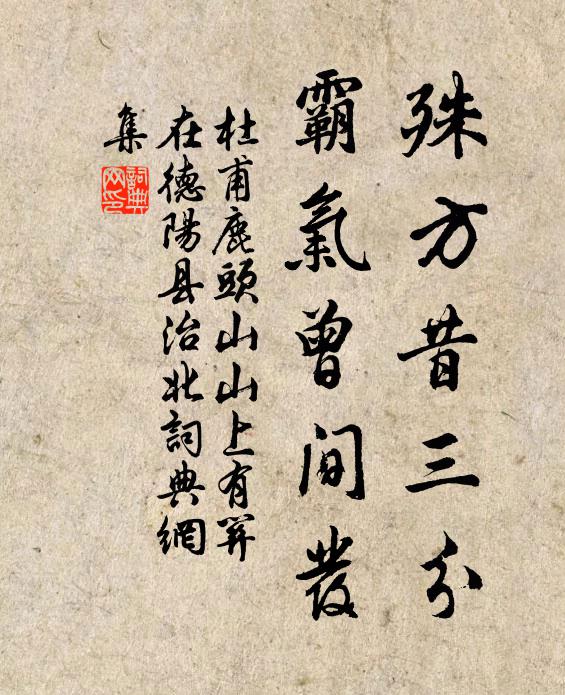 殊方昔三分
霸氣曾間發
杜甫鹿頭山山上有關
在德陽县治北詞典網
集
詞典網印